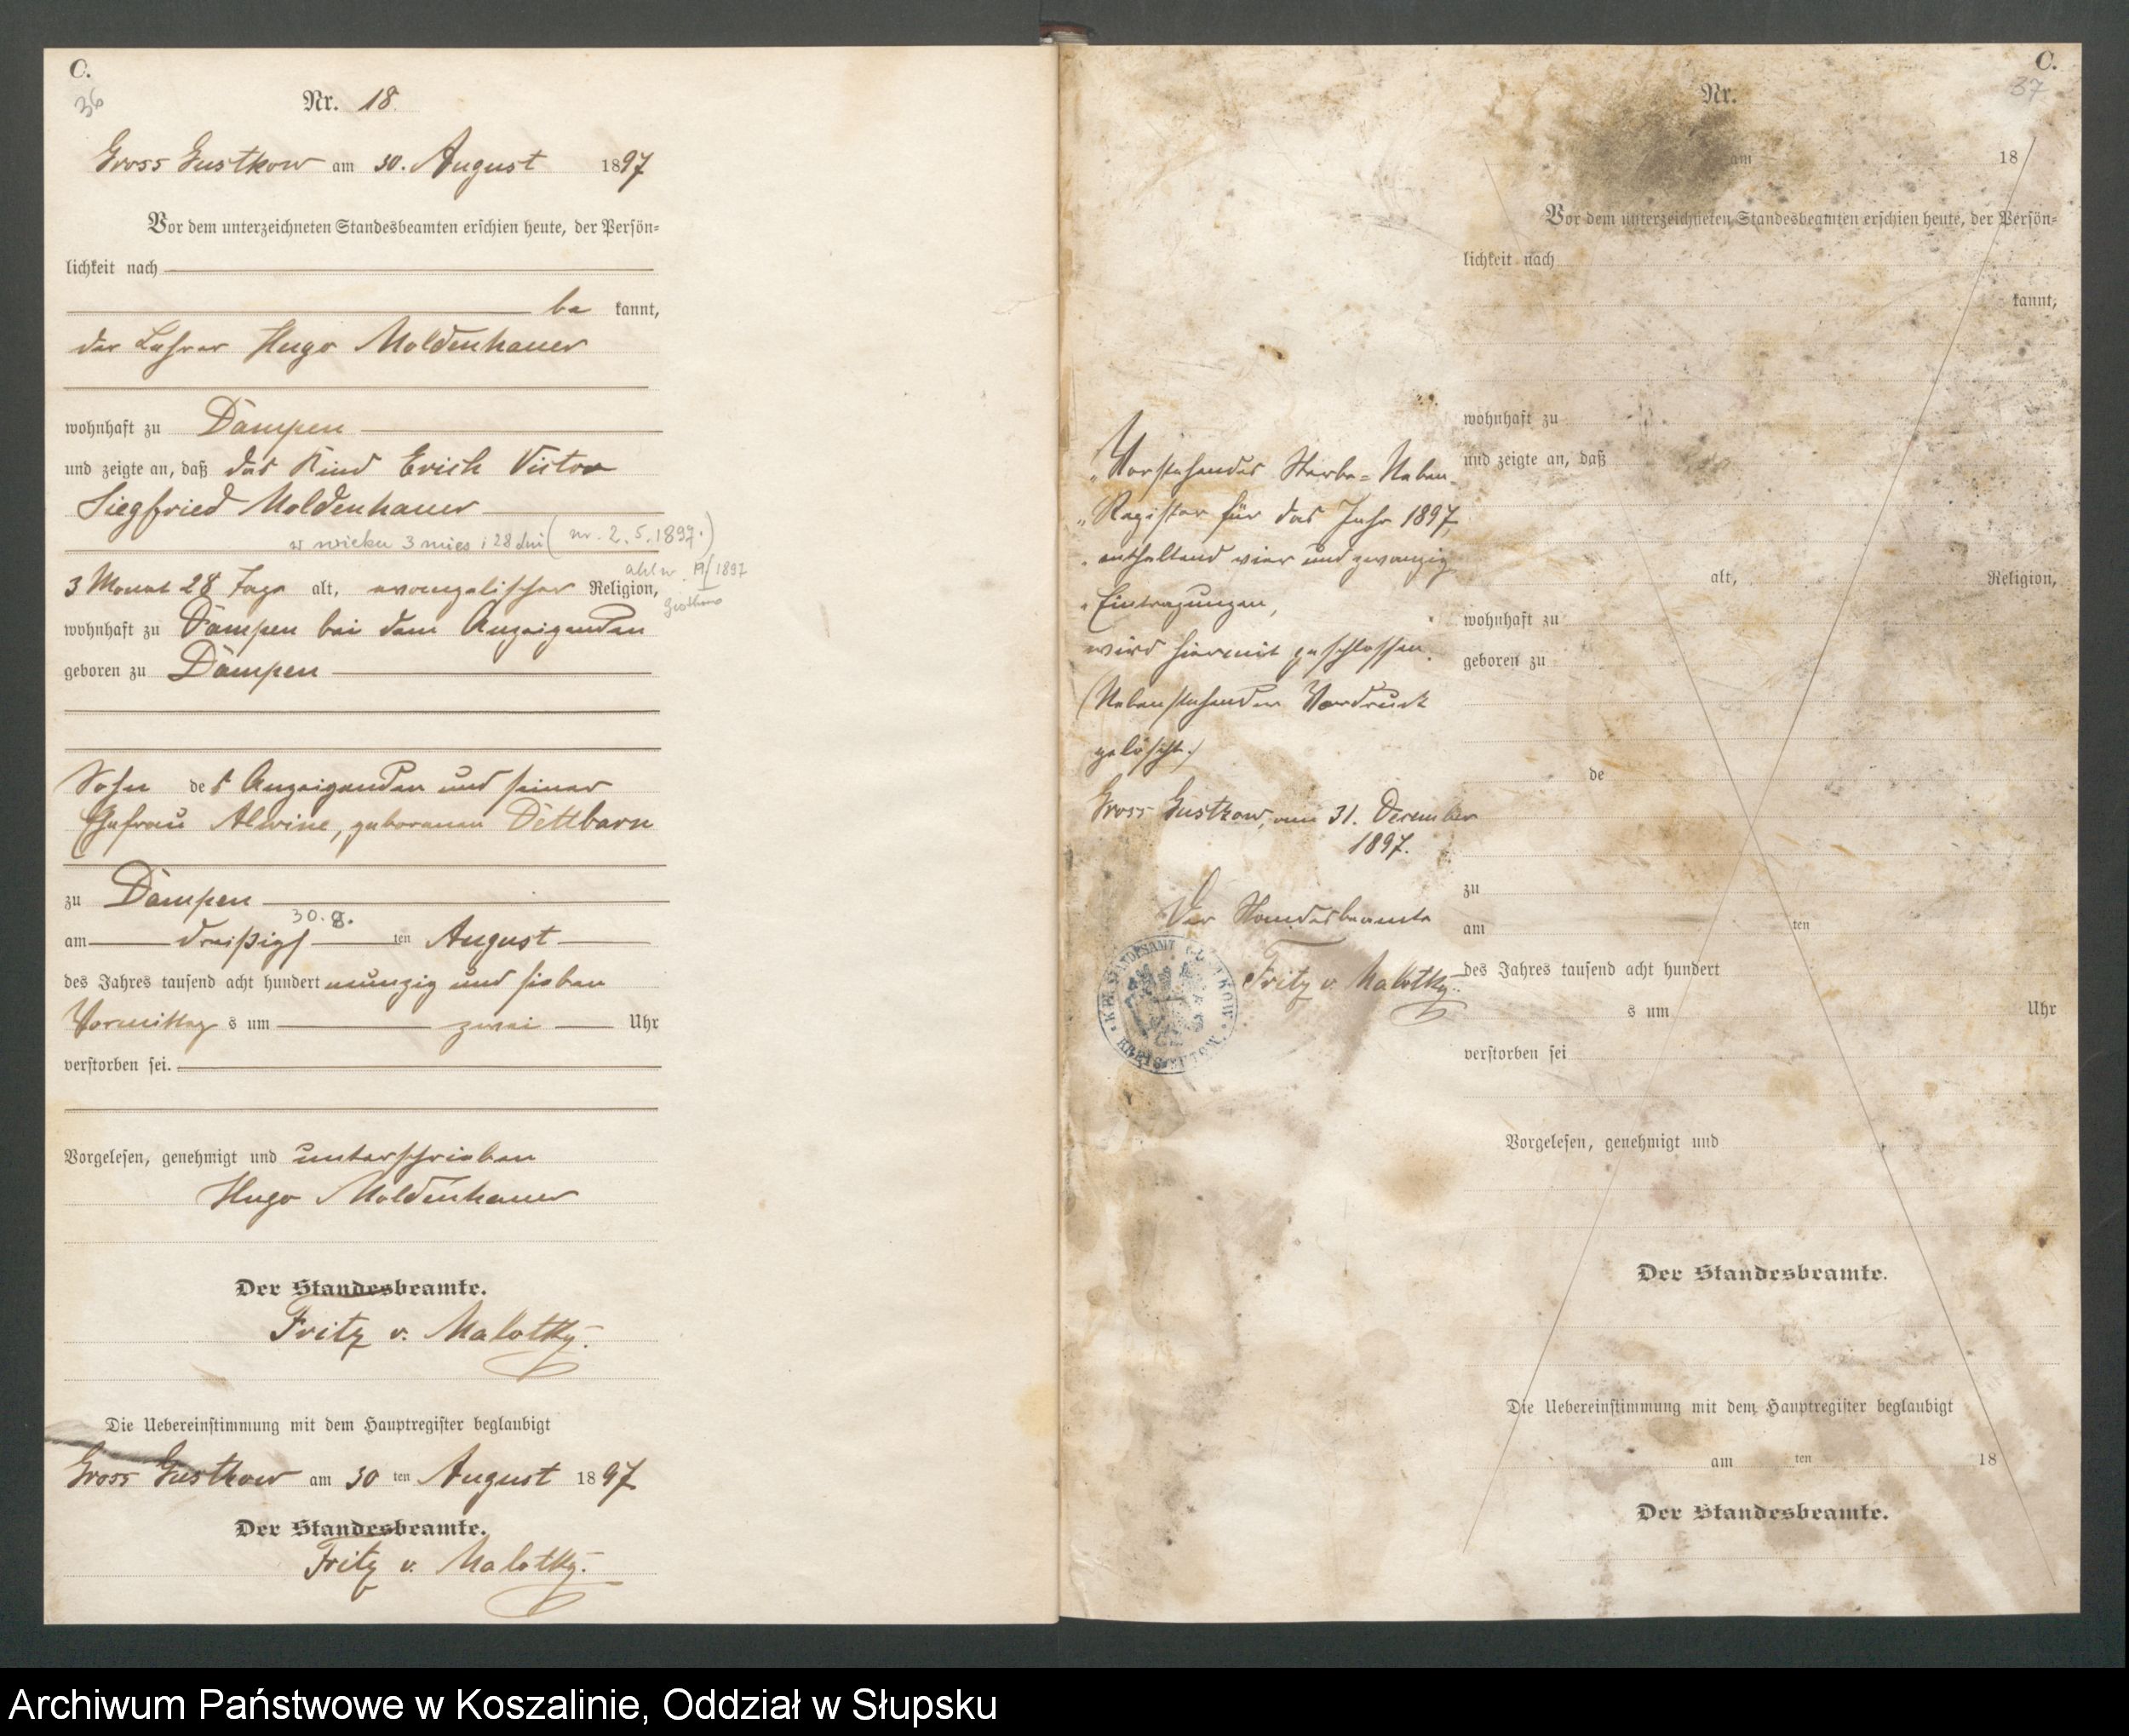 C.
36
Nr. 18.
Gross Gustkow am 30. August 1897
Vor dem unterzeichneten Standesbeamten erschien heute, der Persön-
lichkeit nach
be kannt,
der Lehrer Hugo Moldenhauer
wohnhaft zu Dampen
und zeigte an, daß das Kind Erich Victor
Siegfried Moldenhauer
w wieku 3 mies i 28 dni (ur. 2.5.1897.)
akt ur. 19/1897
3 Monat 28 Tage alt, evangelischer Religion,
wohnhaft zu Dampen bei dem Anzeigenden
geboren zu Dampen
Sohn des Anzeigenden und seiner
Ehefrau Alwine, geborenen Dettbarn
zu Dampen
30. 8.
am dreißigs ten August
des Jahres tausend acht hundert neunzig und sieben
Vormittag s um zwei Uhr
verstorben sei.
Vorgelesen, genehmigt und unterschrieben
Hugo Moldenhauer
Der Standesbeamte.
Fritz v. Malottky.
Die Uebereinstimmung mit dem Hauptregister beglaubigt
Gross Gustkow am 30 ten August 1897
Der Standesbeamte.
Fritz v. Malottky.
C.
37
Nr.
am 18
Vor dem unterzeichneten Standesbeamten erschien heute, der Persön-
lichkeit nach
kannt,
wohnhaft zu
und zeigte an, daß
alt, Religion,
wohnhaft zu
geboren zu
de
zu
am ten
des Jahres tausend acht hundert
s um Uhr
verstorben sei
Vorgelesen, genehmigt und
Der Standesbeamte.
Die Uebereinstimmung mit dem Hauptregister beglaubigt
am ten 18
Der Standesbeamte.
"Vorstehendes Sterbe=Neben-
"Register für das Jahr 1897,
"enthaltend vier und zwanzig
"Eintragungen,
wird hiermit geschlossen.
(Nebenstehender Vordruck
gelöscht.)
Gross Gustkow, am 31. Dezember
1897.
Der Standesbeamte
Fritz v. Malottky.
Archiwum Państwowe w Koszalinie, Oddział w Słupsku